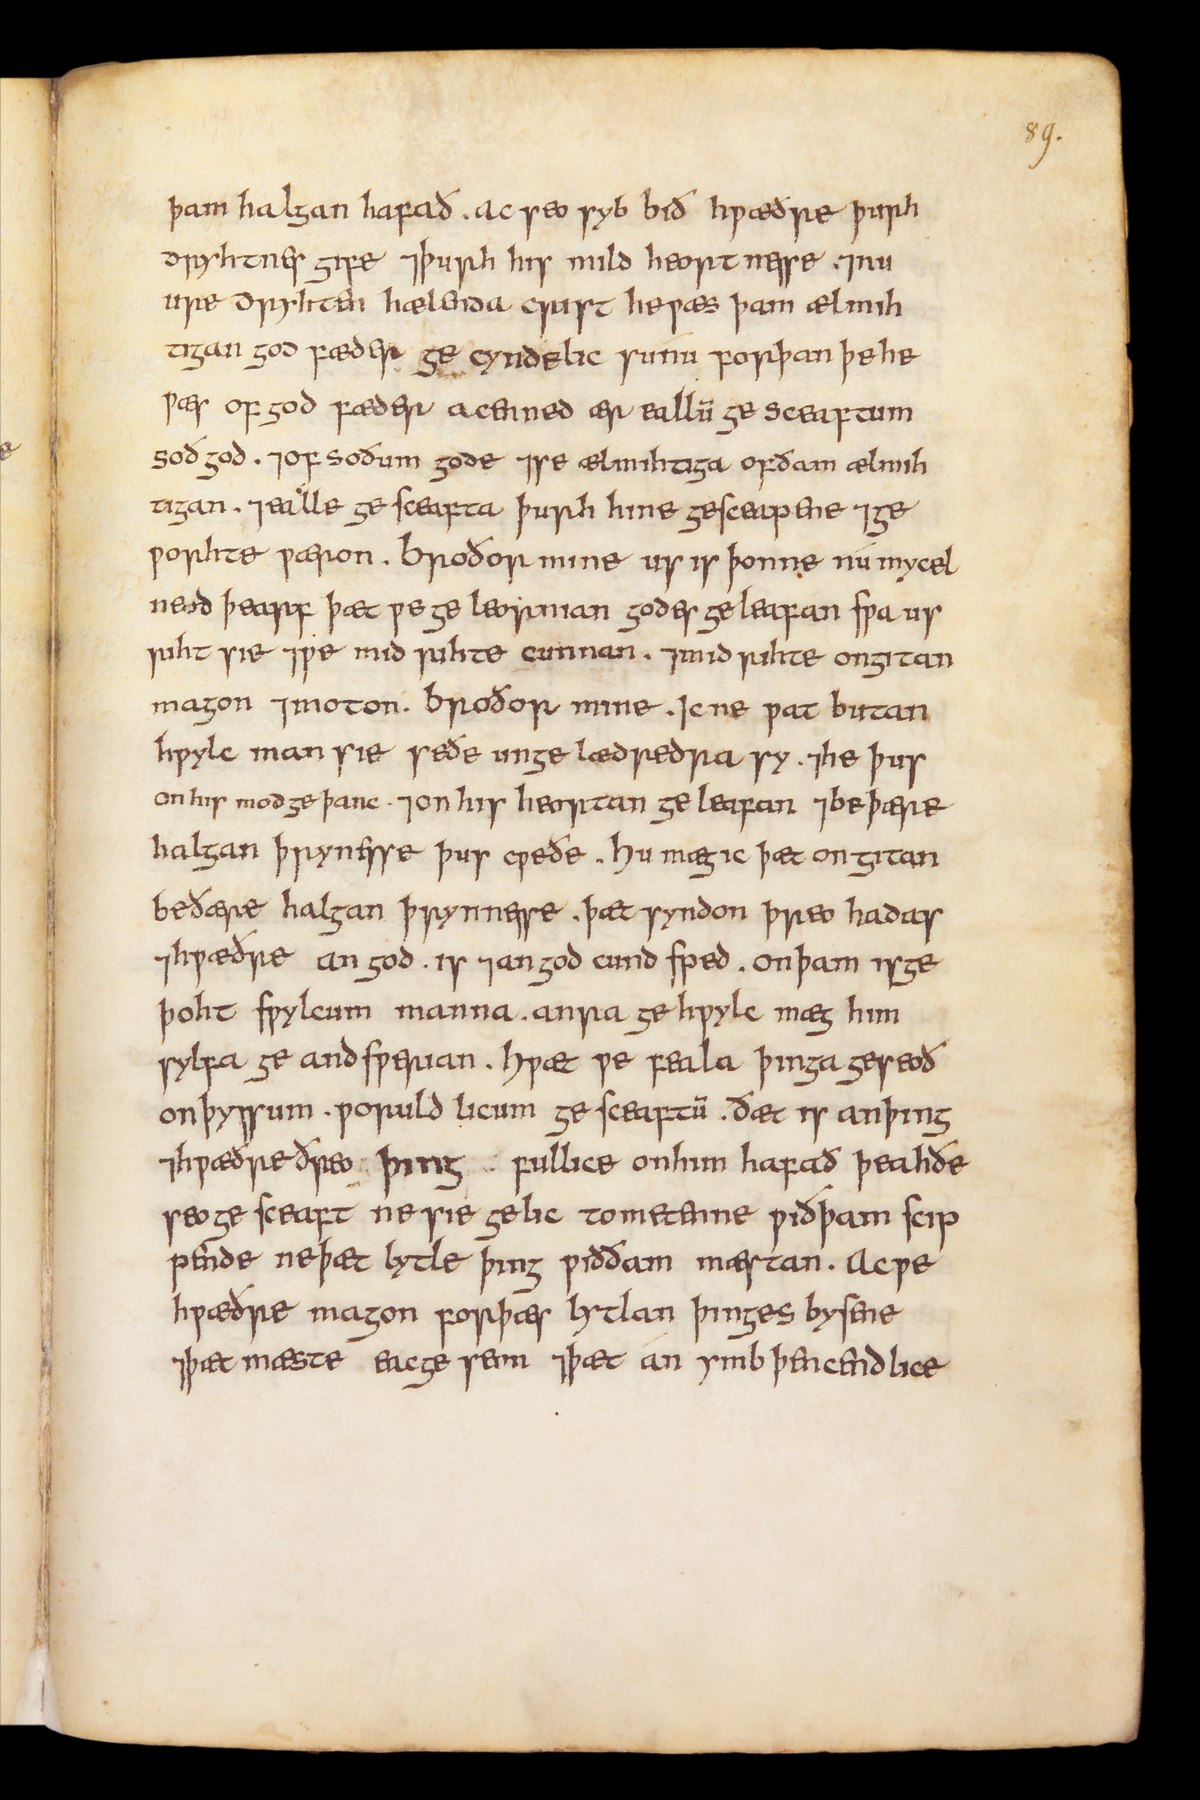 89.
þam halgan hafað . Ac seo syb bið hƿæðre þurh
dryhtnes gife ⁊þurh his mild heortnesse . ⁊nu
ure dryhten hælenda crist heƿæs þam ælmih
tigan god fæder ge cyndelic sunu forþan þe he
ƿæs of god fæder acenned ær eallū ge sceaftum
soð god . ⁊of soðum gode ⁊se ælmihtiga ofðam ælmih
tigan . ⁊ealle ge sceafta þurh hine gesceapene ⁊ge
ƿorhte ƿæron . Broðor mine us is þonne nu mycel
neod þearf þæt ƿe ge leornian godes geleafan sƿa us
riht sie ⁊ƿe mid rihte cunnan . ⁊mid rihte ongitan
magon ⁊moton . Broðor mine . Ic ne ƿat butan
hƿylc man sie seðe unge lædredra sy . ⁊he þus
on his mod ge þanc . ⁊on his heortan geleafan ⁊be þære
halgan þrynesse þus cƿeðe . Hu mæg ic þæt on gitan
beðære halgan þrynnesse . þæt syndon þreo hadas
⁊hƿæðre an god . is ⁊an god cund sƿed . on þam is ge
þoht sƿylcum manna . anra ge hƿylc mæg him
sylfa ge andsƿerian . Hƿæt ƿe feala þinga geseoð
on þyssum . ƿoruld licum ge sceaftū . ðæt is anþing
⁊hƿæðre ðreo þing . fullice onhim hafað þeahðe
seo ge sceaft ne sie gelic tometenne ƿiðþam scip
pende neþæt lytle þing ƿiððam mæstan . Ac ƿe
hƿæðre magon forþæs lytlan þinges bysene
⁊þæt mæste eac ge seon ⁊þæt án ymb þencendlice